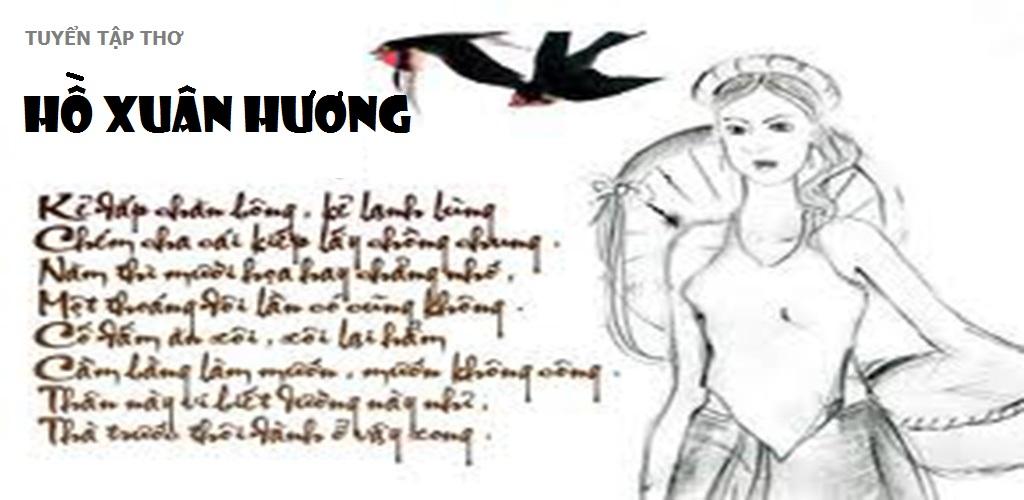 TUYỂN TẬP THƠ
HỒ XUÂN HƯƠNG
Kẻ đắp chăn bông, kẻ lạnh lùng
Chém cha cái kiếp lấy chồng chung.
Năm thì mười họa hay chăng chớ,
Một tháng đôi lần có cũng không.
Cố đấm ăn xôi, xôi lại hẩm
Cầm bằng làm mướn, mướn không công.
Thân này ví biết dường này nhỉ,
Thà trước thôi đành ở vậy xong.